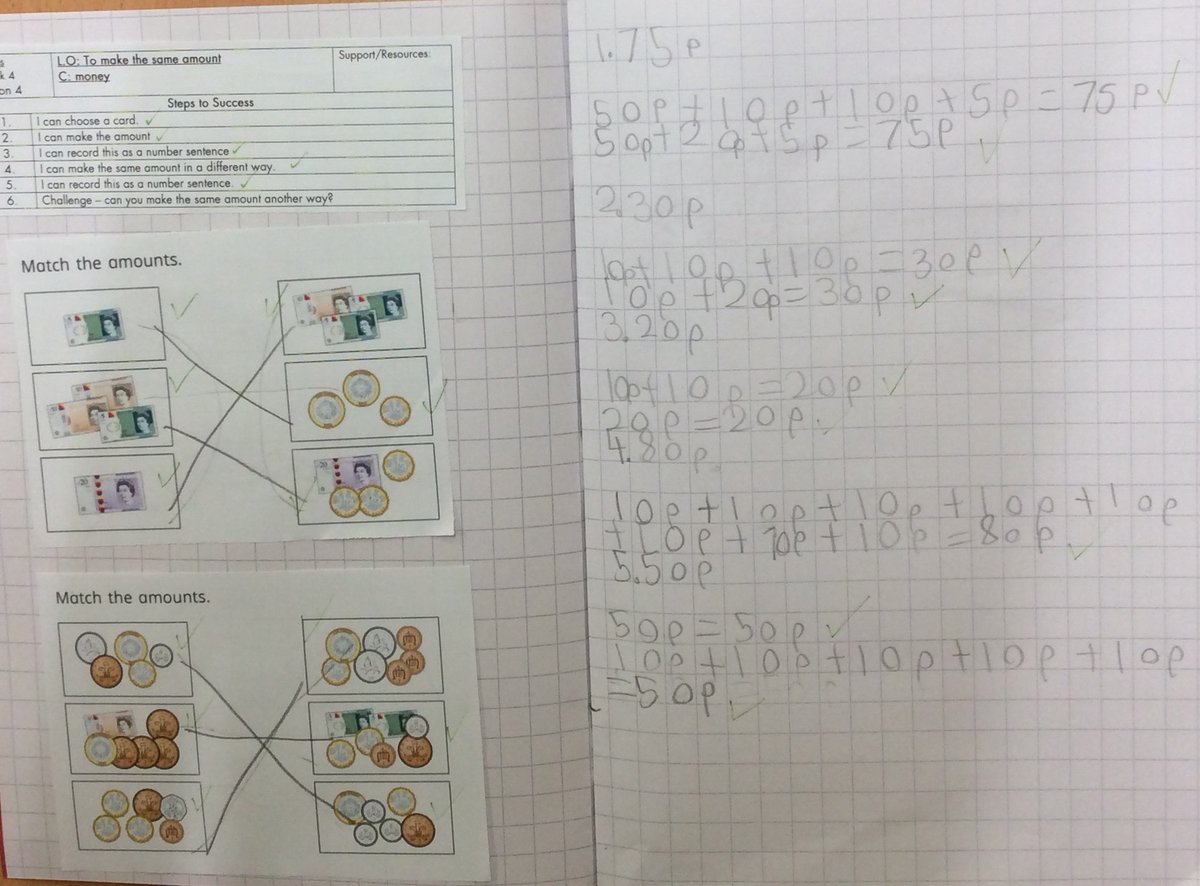 s
k 4
on 4
L.O: To make the same amount
C: money
Support/Resources:
Steps to Success
1. I can choose a card. ✓
2. I can make the amount ✓
3. I can record this as a number sentence ✓
4. I can make the same amount in a different way. ✓
5. I can record this as a number sentence. ✓
6. Challenge – can you make the same amount another way?
Match the amounts.
Match the amounts.
1.75p
50p+10p+10p+5p=75p✓
50p+20p+5p=75p ✓
2.30p
10p+10p+10p=30p ✓
10p+20p=30p ✓
3.20p
10p+10p=20p ✓
20p=20p ✓
4.80p
10p+10p+10p+10p+10p
+10p+10p+10p=80p ✓
5.50p
50p=50p ✓
10p+10p+10p+10p+10p
=50p ✓